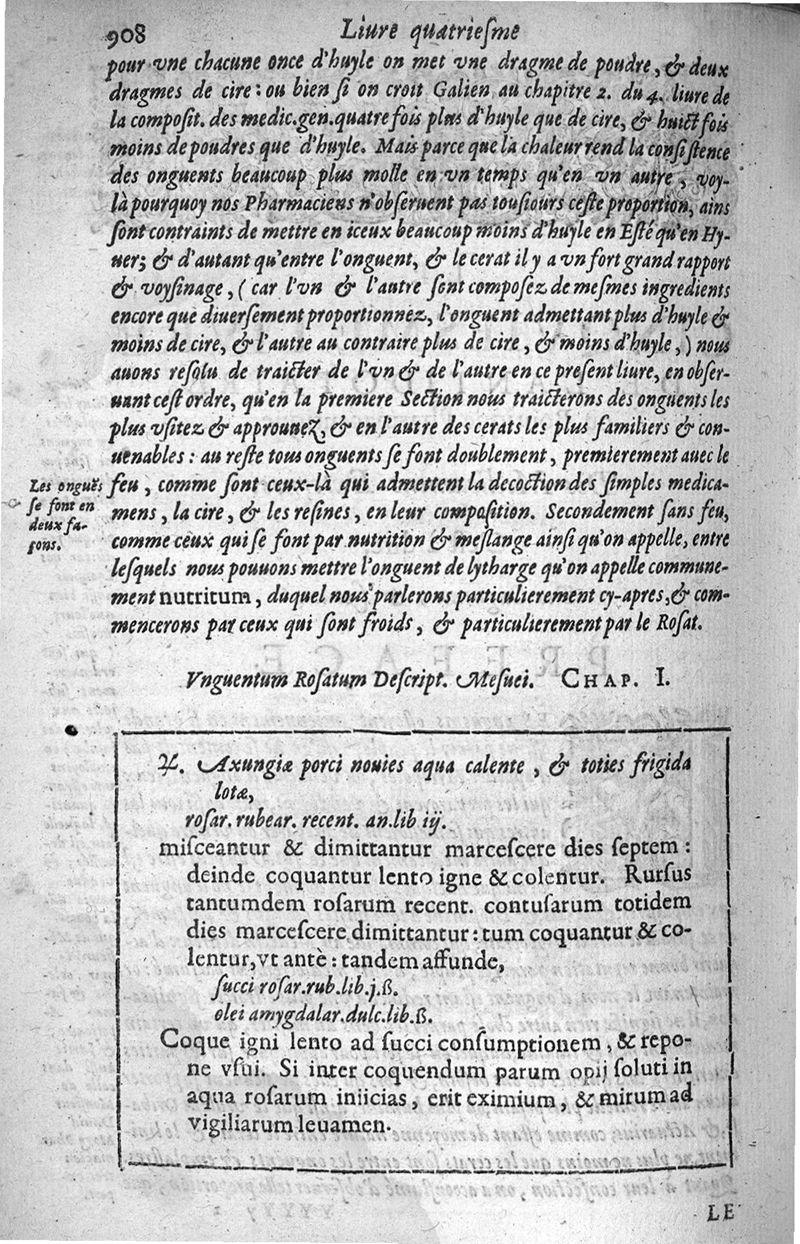 908 Liure quatriesme
pour vne chacune once d'huyle on met vne dragme de poudre, & deux
dragmes de cire: ou bien ſi on croit Galien au chapitre 2. du 4. liure de
la compoſit. des medic. gen. quatre fois plus d'huyle que de cire, & huict fois
moins de poudres que d'huyle. Mais parce que la chaleur rend la conſiſtence
des onguents beaucoup plus molle en vn temps qu'en vn autre, voy-
là pourquoy nos Pharmaciens n'obſeruent pas touſiours ceſte proportion, ains
ſont contraints de mettre en iceux beaucoup moins d'huyle en Eſté qu'en Hy-
uer; & d'autant qu'entre l'onguent, & le cerat il y a vn fort grand rapport
& voyſinage, (car l'vn & l'autre ſont compoſez de meſmes ingredients
encore que diuerſement proportionnez, l'onguent admettant plus d'huyle &
moins de cire, & l'autre au contraire plus de cire, & moins d'huyle,) nous
auons reſolu de traicter de l'vn & de l'autre en ce preſent liure, en obſer-
uant ceſt ordre, qu'en la premiere Section nous traicterons des onguents les
plus vſitez & approuuez, & en l'autre des cerats les plus familiers & con-
uenables: au reſte tous onguents ſe font doublement, premierement auec le
feu, comme ſont ceux-là qui admettent la decoction des ſimples medica-
mens, la cire, & les reſines, en leur compoſition. Secondement ſans feu,
comme ceux qui ſe font par nutrition & meſlange ainſi qu'on appelle, entre
leſquels nous pouuons mettre l'onguent de lytharge qu'on appelle commune-
ment nutritum, duquel nous parlerons particulierement cy-apres, & com-
mencerons par ceux qui ſont froids, & particulierement par le Roſat.
Les onguẽs
ſe font en
deux fa-
çons.
Vnguentum Roſatum Deſcript. Meſuei. CHAP. I.
♃. Axungiæ porci nouies aqua calente, & toties frigida
lotæ,
roſar. rubear. recent. an. lib iij.
miſceantur & dimittantur marceſcere dies ſeptem:
deinde coquantur lento igne & colentur. Rurſus
tantumdem roſarum recent. contuſarum totidem
dies marceſcere dimittantur: tum coquantur & co-
lentur, vt antè: tandem affunde,
ſucci roſar. rub. lib. j. ß.
olei amygdalar. dulc. lib. ß.
Coque igni lento ad ſucci conſumptionem, & repo-
ne vſui. Si inter coquendum parum opij ſoluti in
aqua roſarum iniicias, erit eximium, & mirum ad
vigiliarum leuamen.
LE